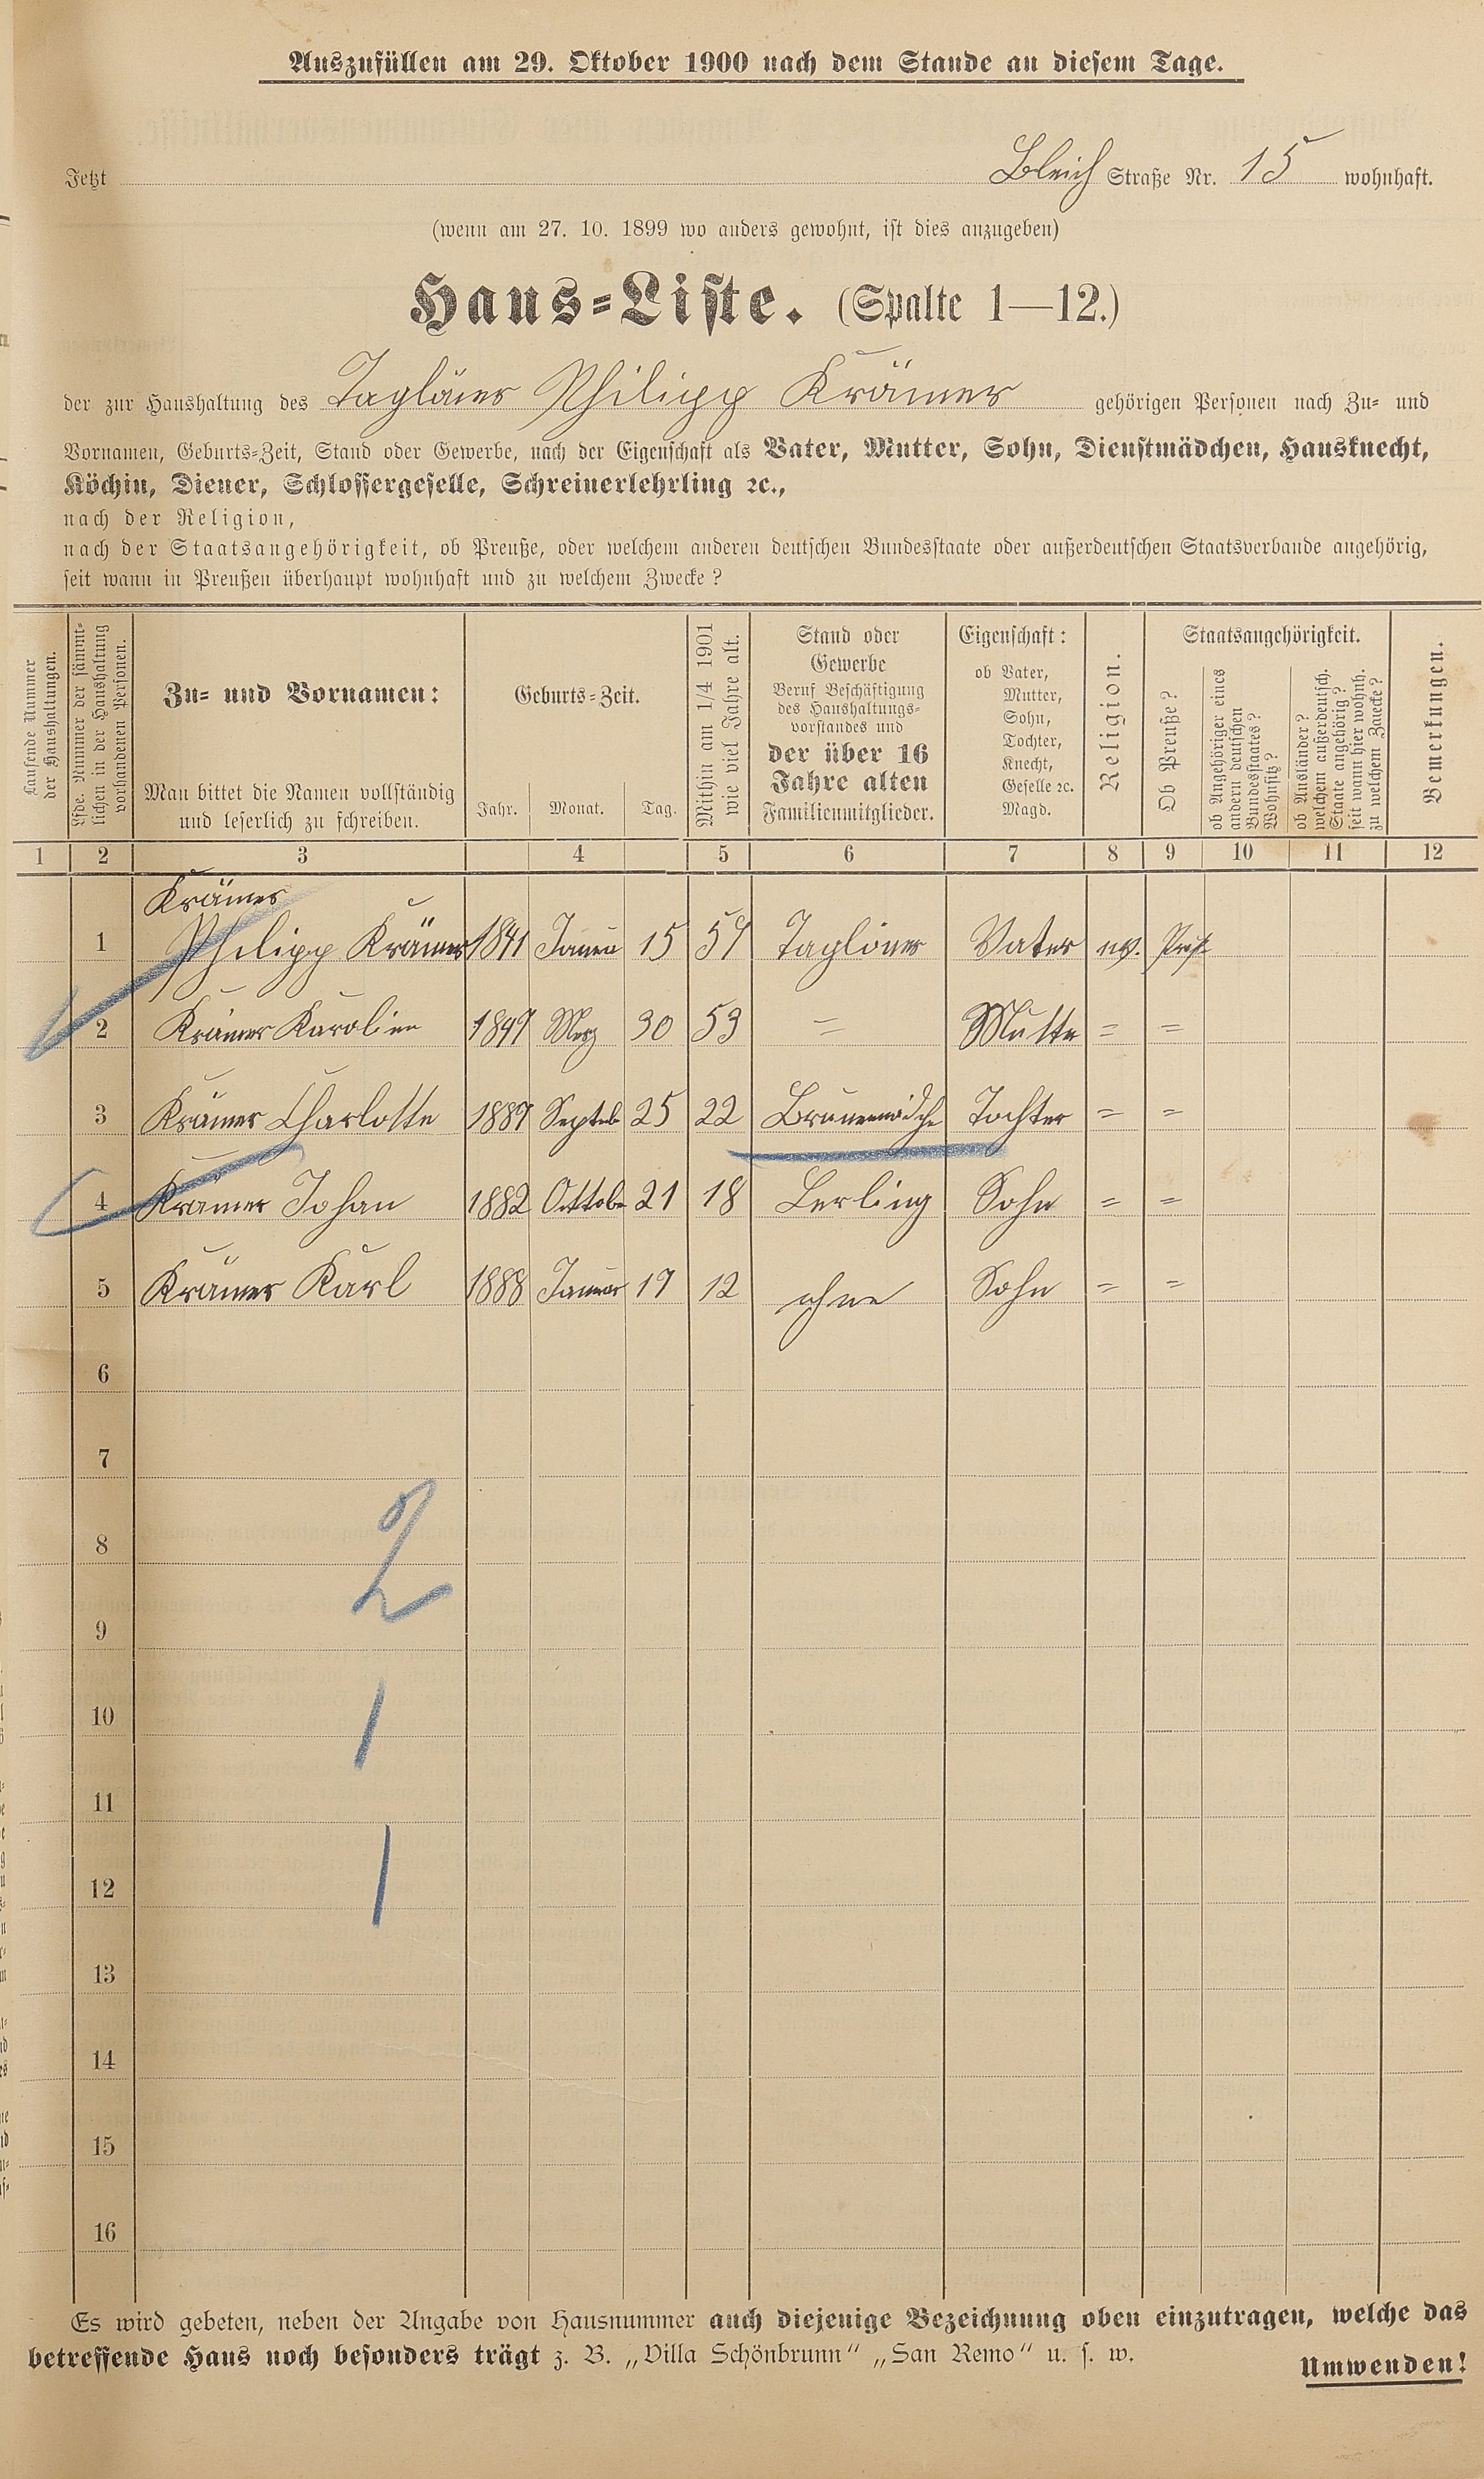 Auszufüllen am 29. Oktober 1900 nach dem Stande an diesem Tage.
Jetzt Bleich Straße Nr. 15 wohnhaft.
(wenn am 27. 10. 1899 wo anders gewohnt, ist dies anzugeben)
Haus-Liste. (Spalte 1—12.)
der zur Haushaltung des Taglöner Philipp Krämer gehörigen Personen nach Zu- und
Vornamen, Geburts-Zeit, Stand oder Gewerbe, nach der Eigenschaft als Vater, Mutter, Sohn, Dienstmädchen, Hausknecht,
Köchin, Diener, Schlossergeselle, Schreinerlehrling ꝛc.,
nach der Religion,
nach der Staatsangehörigkeit, ob Preuße, oder welchem anderen deutschen Bundesstaate oder außerdeutschen Staatsverbande angehörig,
seit wann in Preußen überhaupt wohnhaft und zu welchem Zwecke?
Laufende Nummer
der Haushaltungen.
Lfde. Nummer der sämmt-
lichen in der Haushaltung
vorhandenen Personen.
Zu- und Vornamen:
Man bittet die Namen vollständig
und leserlich zu schreiben.
Geburts-Zeit.
Jahr. Monat. Tag.
Mithin am 1/4 1901
wie viel Jahre alt.
Stand oder
Gewerbe
Beruf Beschäftigung
des Haushaltungs-
vorstandes und
der über 16
Jahre alten
Familienmitglieder.
Eigenschaft:
ob Vater,
Mutter,
Sohn,
Tochter,
Knecht,
Geselle ꝛc.
Magd.
Religion.
Staatsangehörigkeit.
Ob Preuße?
ob Angehöriger eines
andern deutschen
Bundesstaates?
Wohnsitz?
ob Ausländer?
welchem außerdeutsch.
Staate angehörig?
seit wann hier wohnh.
zu welchem Zwecke?
Bemerkungen.
1 2 3 4 5 6 7 8 9 10 11 12
Krämer
1 Philipp Krämer 1841 15 59 Taglöner Vater ev.
2 Krämer Karolien 1847 Merz 30 53 = Mutter = =
3 Krämer Charlotte 1889 Septeb 25 22 Tochter = =
4 Krämer Johan 1882 Octtober 21 18 Lerling Sohn = =
5 Krämer Karl 1888 Januar 19 12 ohne Sohn = =
6
7
2
8
9
10 1
11
12 1
13
14
15
16
Es wird gebeten, neben der Angabe von Hausnummer auch diejenige Bezeichnung oben einzutragen, welche das
betreffende Haus noch besonders trägt z. B. „Villa Schönbrunn“ „San Remo“ u. s. w.
Umwenden!